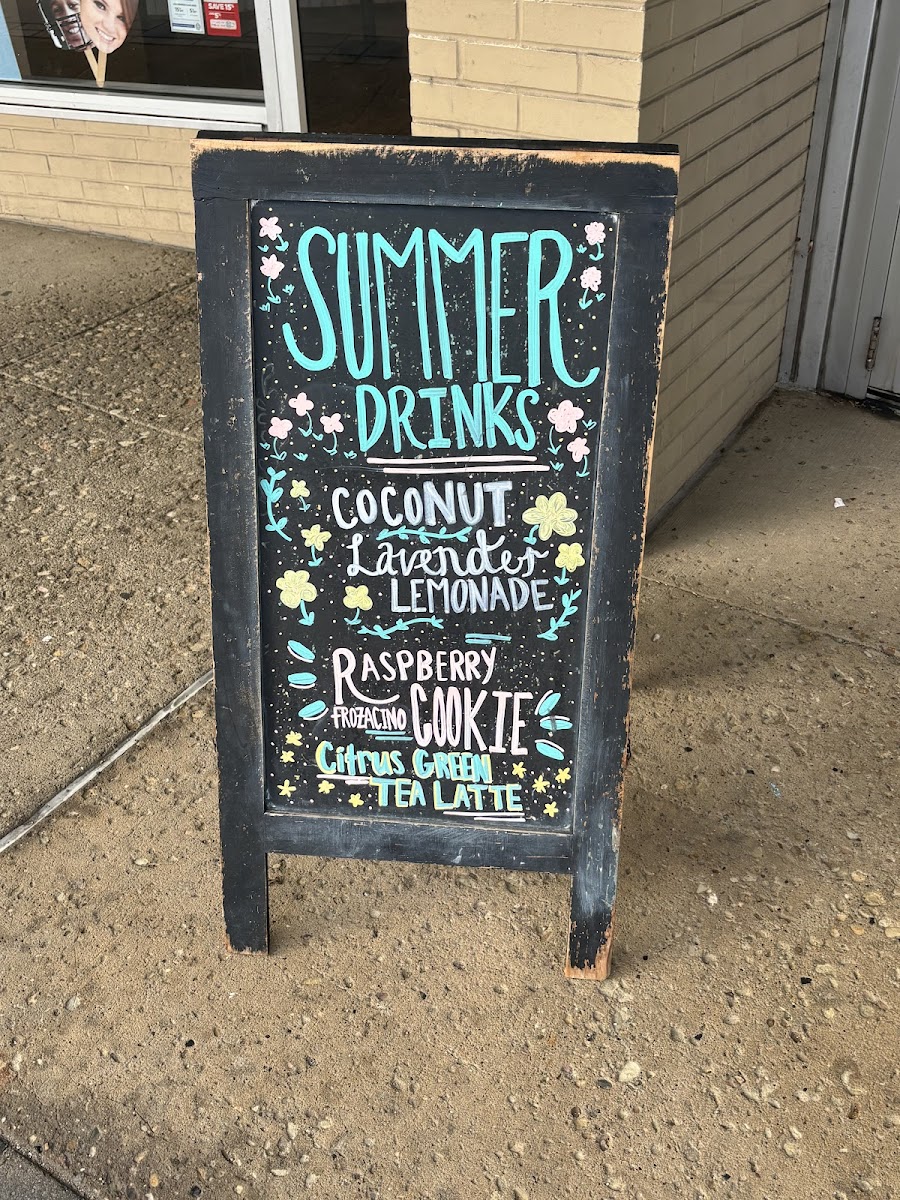 SAVE 15%
SUMMER
DRINKS
COCONUT
Lavender
LEMONADE
RASPBERRY
FROZACINO COOKIE
Citrus GREEN
TEA LATTE